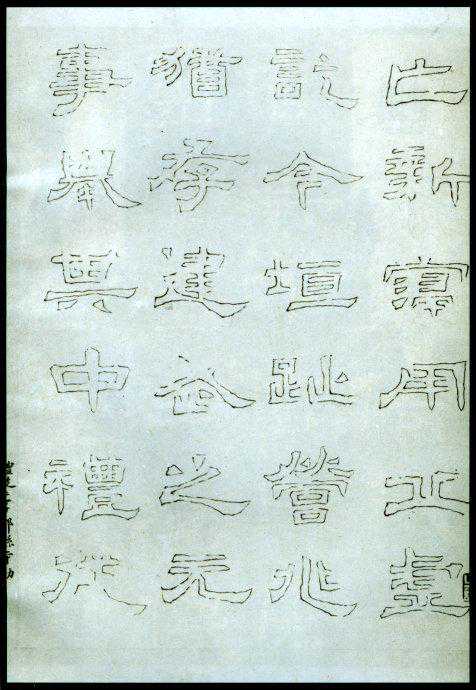 亡新寖用丘虛
訖今垣趾營兆
猶存建武之元
事舉其中禮從